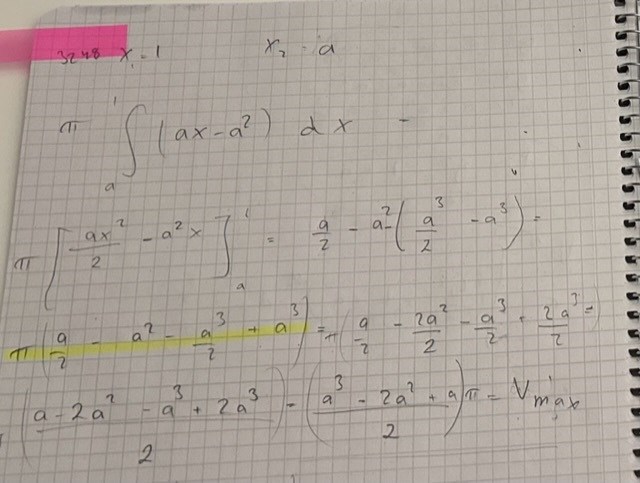 3248 x₁ = 1 x₂ = a
π ∫ₐ¹ (ax - a²) dx =
π [ax²/2 - a²x]ₐ¹ = a/2 - a² - (a³/2 - a³) =
π (a/2 - a² - a³/2 + a³) = π (a/2 - 2a²/2 - a³/2 + 2a³/2) =
(a - 2a² - a³ + 2a³)/2 = (a³ - 2a² + a)/2 π = Vmax